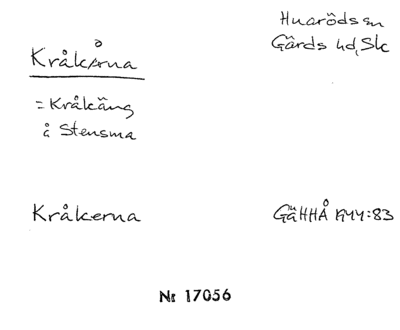 Huaröds sn
Gärds hd, Sk
Kråkårna
= Kråkäng
å Stensma
Kråkerna
GäHHÅ 1944:83
Nr 17056